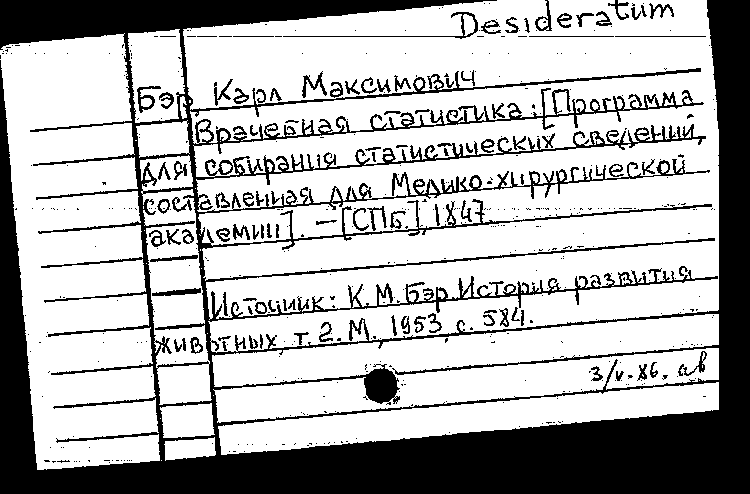 Desideratum
Бэр, Карл Максимович
Врачебная статистика: [Программа
для собирания статистических сведений,
составленная для Медико-хирургической
академии]. — [СПб.], 1847.
Источник: К.М. Бэр. История развития
животных, т. 2. М., 1953, с. 584.
3/V-86. ав